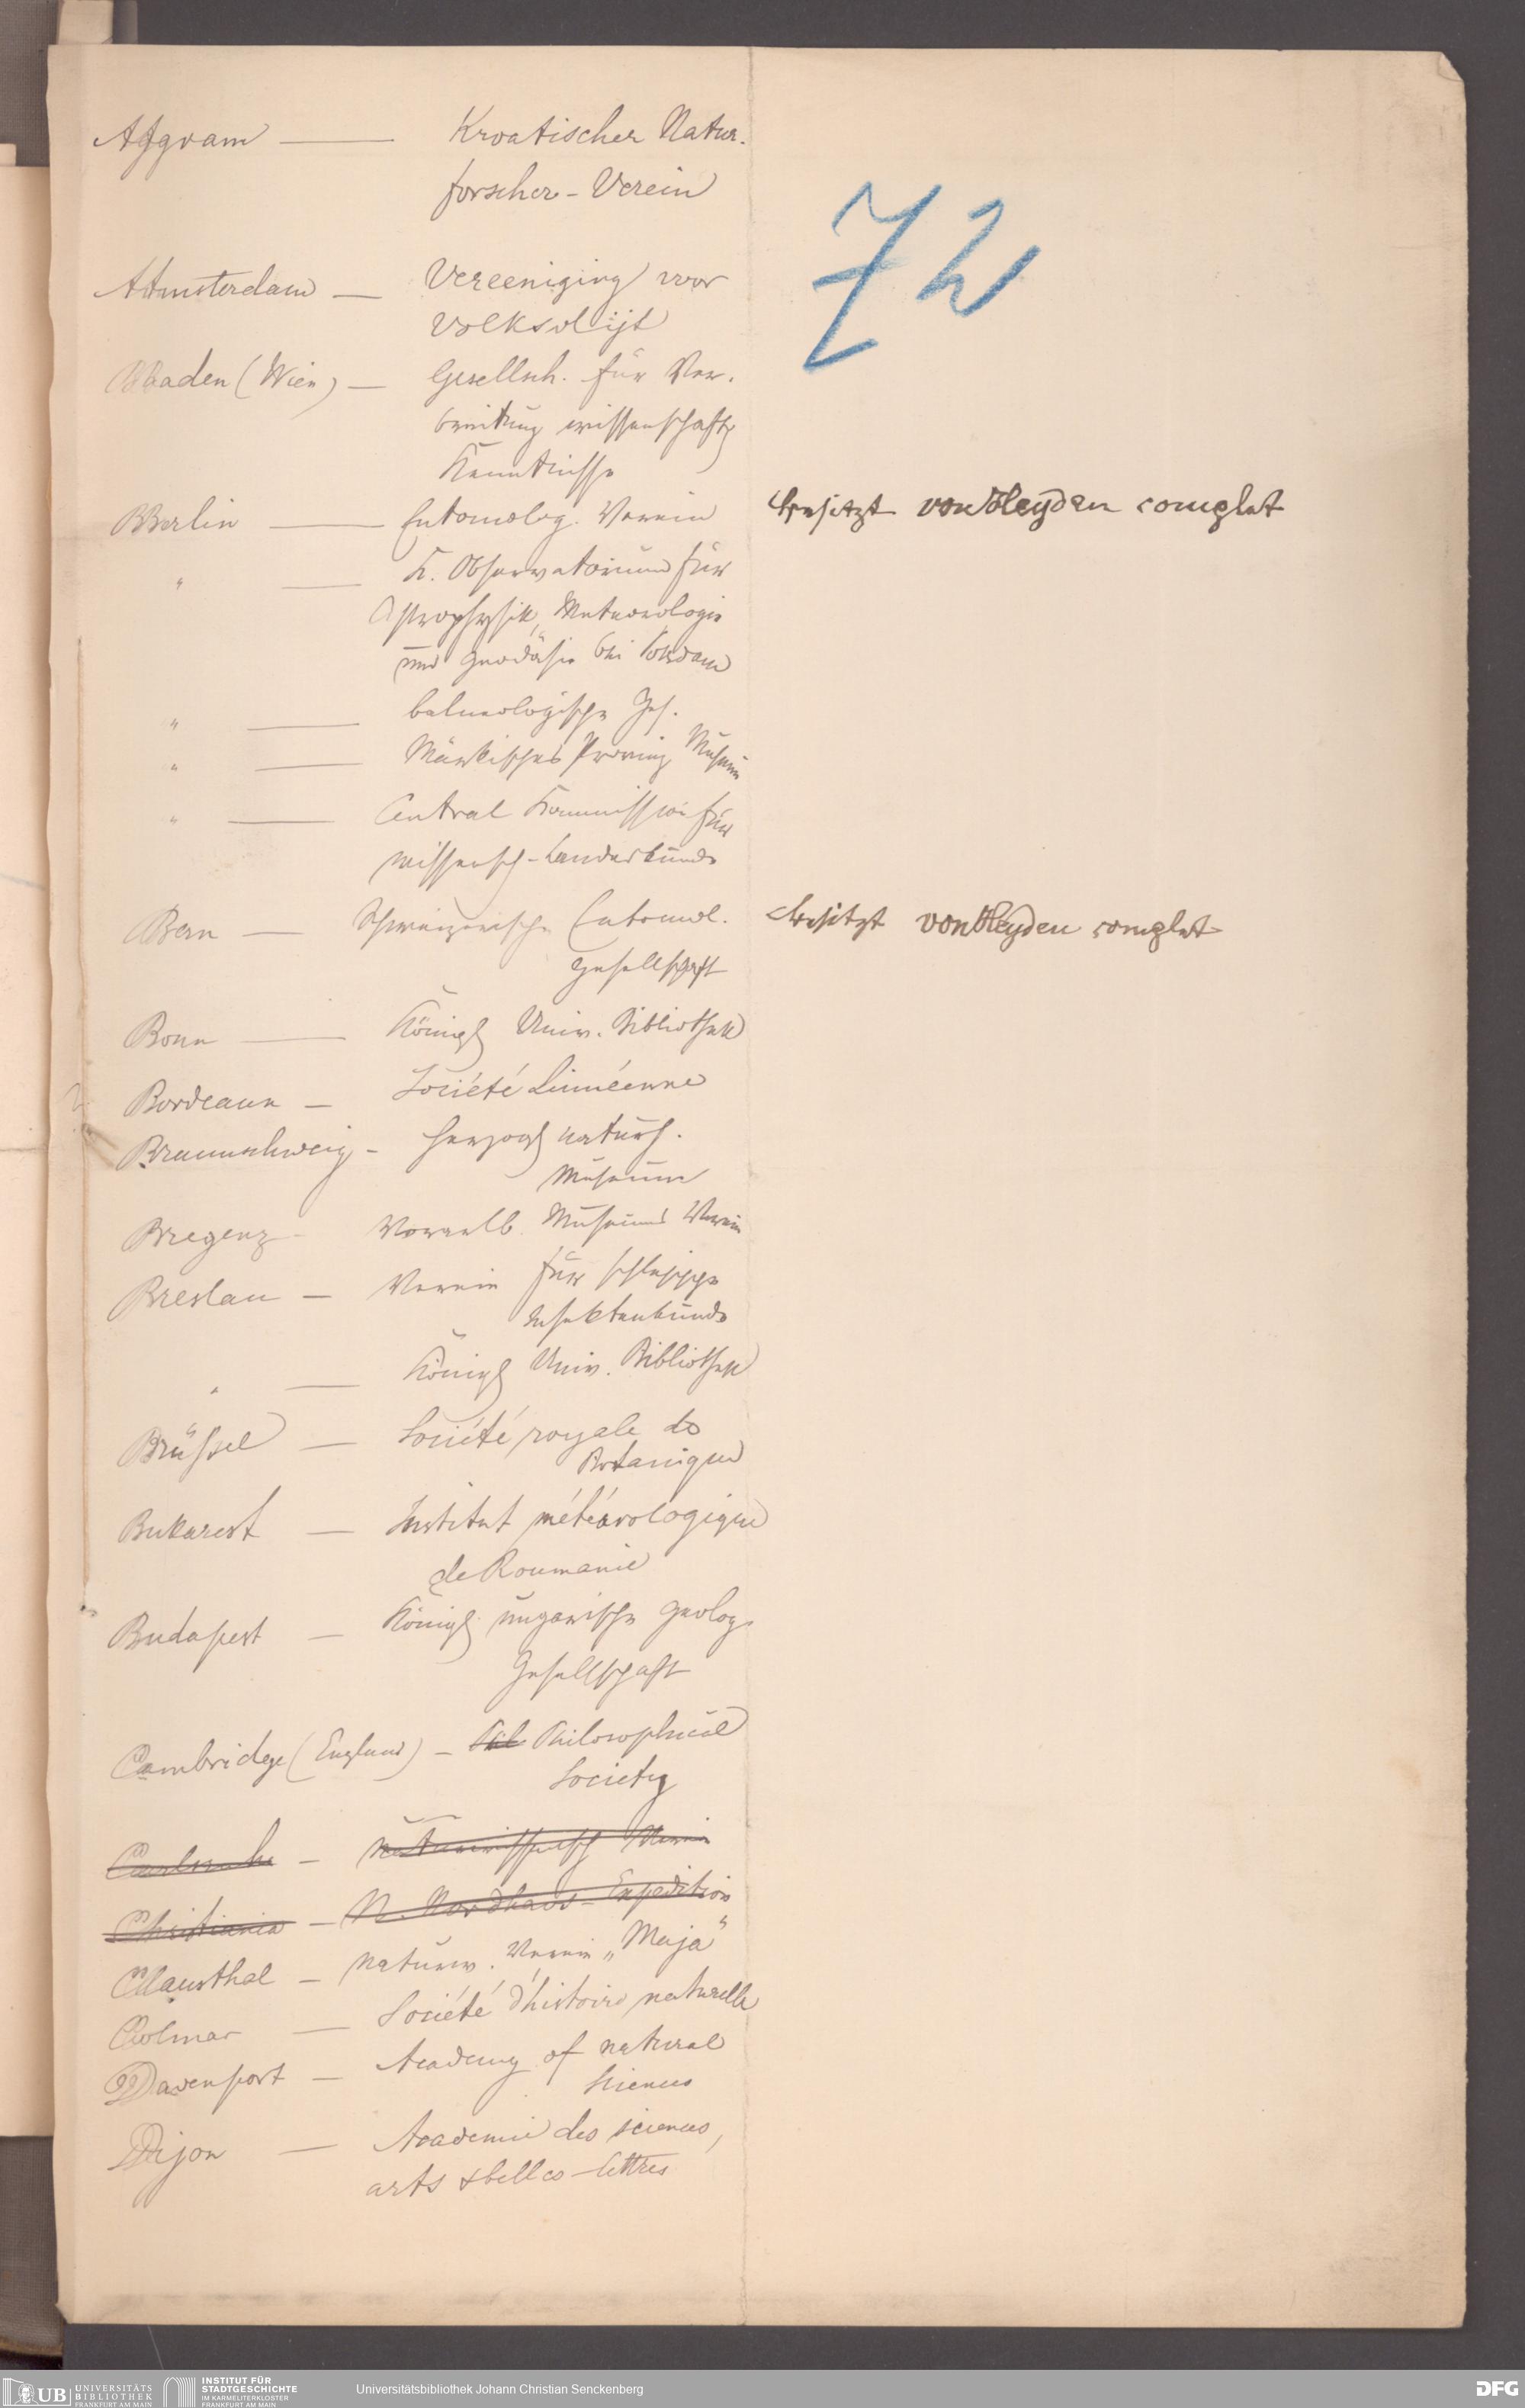 Agram — Kroatischer Natur-
forscher-Verein
ZW
Amsterdam — Vereeniging voor
Volksvlijt
Baden (Wien) — Gesellsch. für Ver-
breitung wissenschaftl
Kenntnisse
Berlin — Entomolog. Verein besitzt von Heyden complet
" — K. Observatorium für
Astrophysik, Meteorologie
und Geodäsie bei Potsdam
" — balneologische Ges.
" — Märkisches Provinz Museum
" — Central Kommission für
wissensch-Landeskunde
Bern — Schweizerische Entomol. besitzt von Heyden complet
Gesellschaft
Bonn — Königl Univ. Bibliothek
Bordeaux — Société Linnéenne
Braunschweig - Herzogl naturh.
Museum
Bregenz - Vorarlb. Museums Verein
Breslau — Verein für schlesische
Insektenkunde
" — Königl Univ. Bibliothek
Brüssel — Société royale de
Botanique
Bukarest — Institut météorologique
de Roumanie
Budapest — Königl ungarische Geolog.
Gesellschaft
Cambridge (England) — Phil Philosophical
Society
Carlsruhe — naturwissensch Verein
Christiania — N. Nordhavs-Expedition
Clausthal — naturw. Verein „Maja"
Colmar — Société d'histoire naturelle
Davenport — Academy of natural
Sciences
Dijon — Academie des sciences,
arts & belles-lettres
UB UNIVERSITÄTS
BIBLIOTHEK
FRANKFURT AM MAIN
INSTITUT FÜR
STADTGESCHICHTE
IM KARMELITERKLOSTER
FRANKFURT AM MAIN
Universitätsbibliothek Johann Christian Senckenberg
DFG